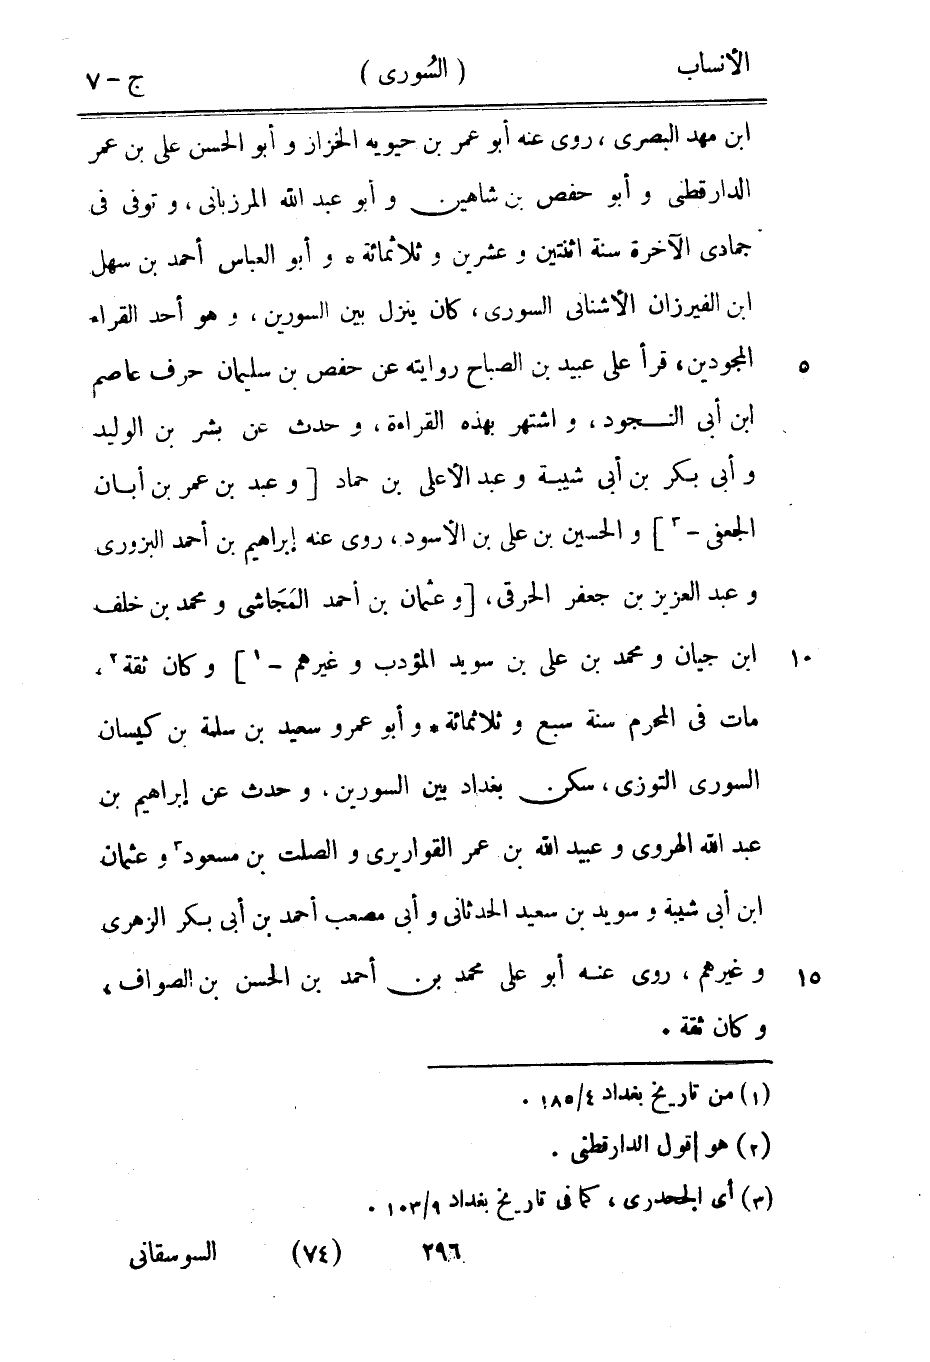 الأنساب ( السُورى ) ج - ٧
ابن مهد البصرى ، روى عنه أبو عمر بن حيويه الخزاز و أبو الحسن على بن عمر
الدارقطنى و أبو حفص بن شاهين و أبو عبد الله المرزبانى ، و توفى فى
جمادى الآخرة سنة اثنتين و عشرين و ثلاثمائة ٥ و أبو العباس أحمد بن سهل
ابن الفيرزان الأشنانى السورى ، كان ينزل بين السورين ، و هو أحد القراء
٥ المجودين ، قرأ على عبيد بن الصباح روايته عن حفص بن سليمان حرف عاصم
ابن أبى النـجود ، و اشتهر بهذه القراءة ، و حدث عن بشر بن الوليد
و أبى بكر بن أبى شيبة و عبد الأعلى بن حماد [ و عبد بن عمر بن أبـان
الجعفى - ٣ ] و الحسين بن على بن الأسود ، روى عنه إبراهيم بن أحمد البزورى
و عبد العزيز بن جعفر الخرقى ، [ و عثمان بن أحمد المَجَاشى و محمد بن خلف
١٠ ابن جيان و محمد بن على بن سويد المؤدب و غيرهم - ١ ] و كان ثقة ٢ ،
مات فى المحرم سنة سبع و ثلاثمائة * و أبو عمرو سعيد بن سلمة بن كيسان
السورى التوزى ، سكن بغداد بين السورين ، و حدث عن إبراهيم بن
عبد الله الهروى و عبيد الله بن عمر القواريرى و الصلت بن مسعود ٣ و عثمان
ابن أبى شيبة و سويد بن سعيد الحدثانى و أبى مصعب أحمد بن أبى بكر الزهرى
١٥ و غيرهم ، روى عنه أبو على محمد بن أحمد بن الحسن بن الصواف ،
و كان ثقة .
(١) من تاريخ بغداد ٤/١٨٥ .
(٢) هو قول الدارقطنى .
(٣) أى الجحدرى ، كما فى تاريخ بغداد ٩/١٠٣ .
٢٩٦ (٧٤) السوسقانى